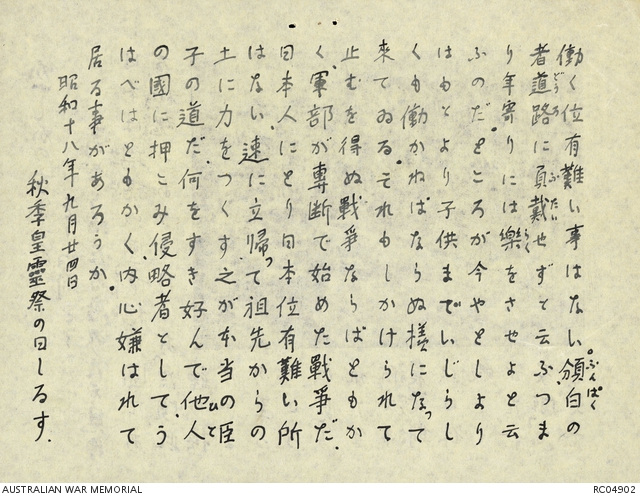 働く位有難い事はない。頒白の
ぶんぱく
者道路に負戴せずと云ふつま
どうろ
ふたい
り年寄りには樂をさせよと云
らく
ふのだ。ところが今やとしより
はもとより子供までいじらし
くも働かねばならぬ様になって
来てゐる。それもしかけられて
止むを得ぬ戰爭ならばともか
く、軍部が專断で始めた戰爭だ。
日本人にとり日本位有難い所
はない、速に立帰って祖先からの
土に力をつくす之が本当の臣
子の道だ、何をすき好んで他人
ひと
の國に押こみ侵略者としてう
はべはともかく、内心嫌はれて
居る事があろうか。
昭和十八年九月廿四日
秋季皇靈祭の日しるす.
AUSTRALIAN WAR MEMORIAL
RC04902